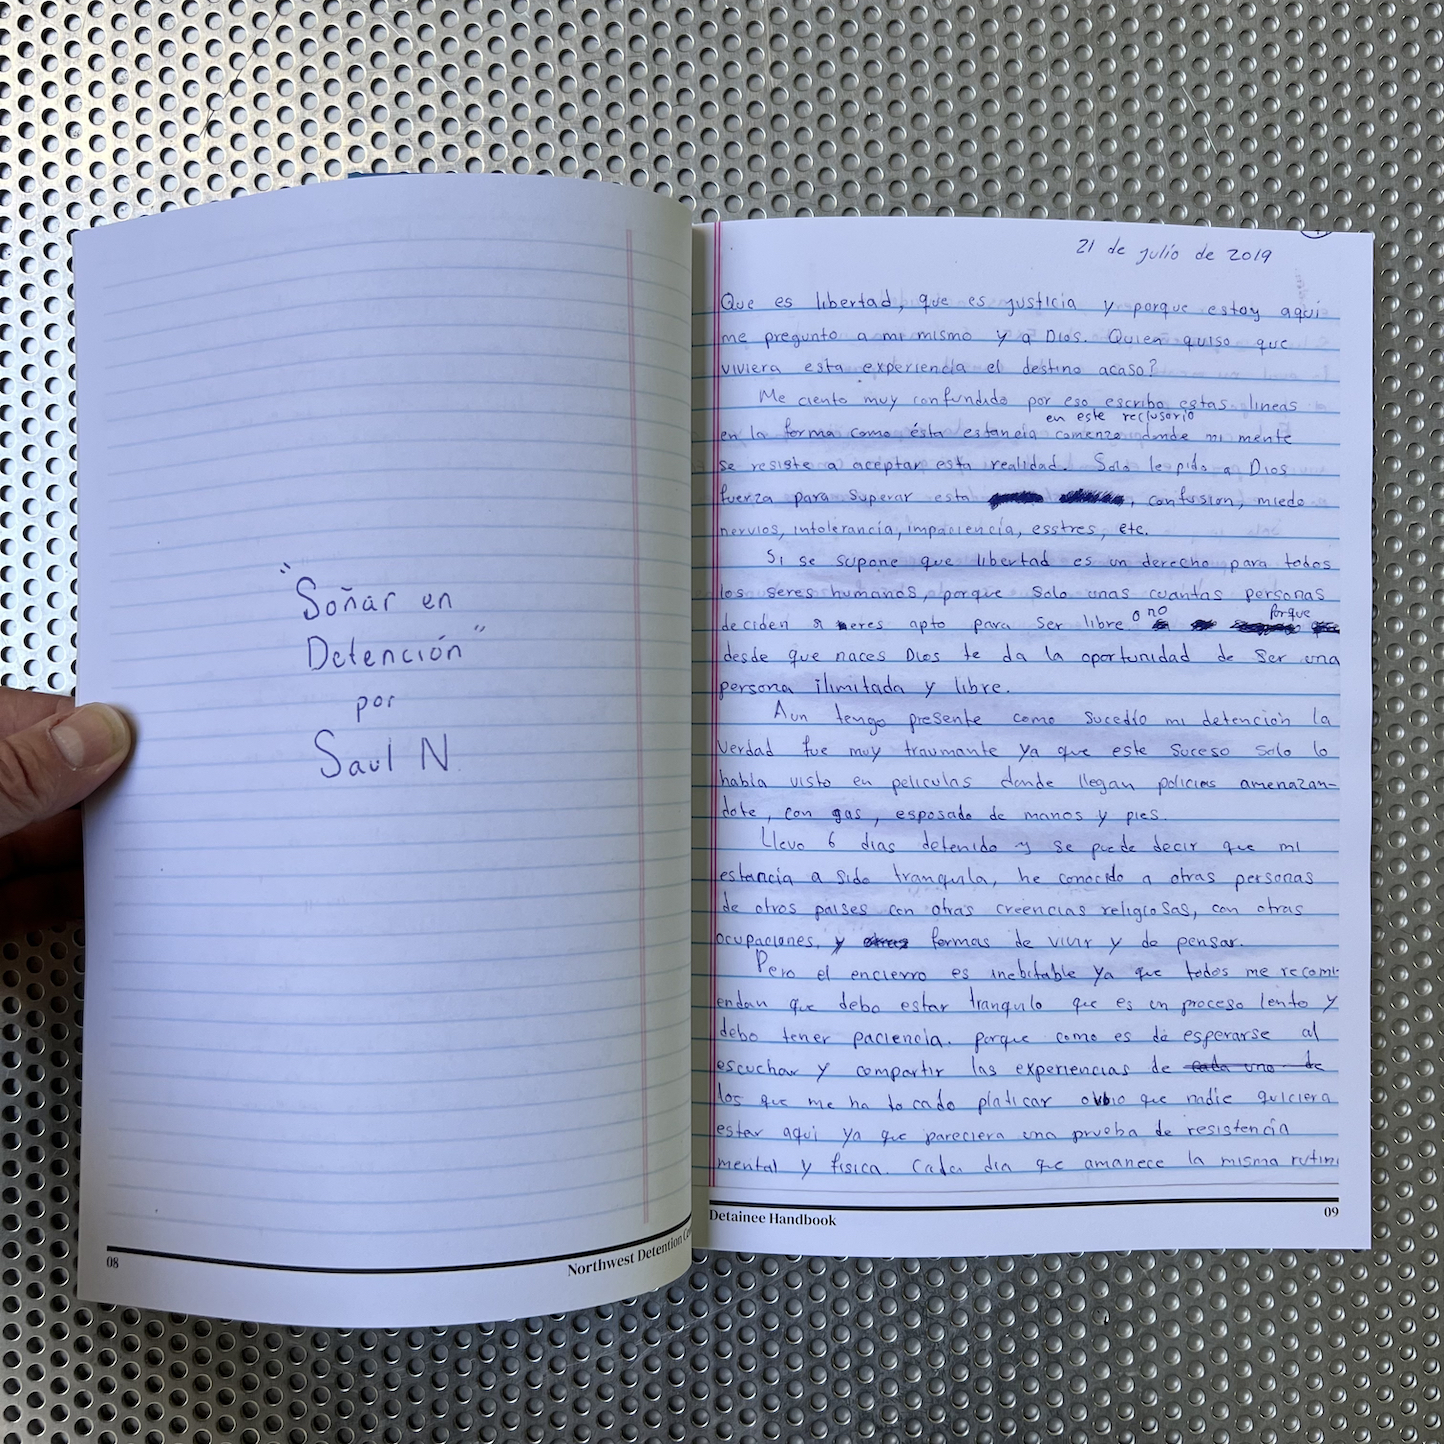 "Soñar en
Detención"
por
Saul N.
08
Northwest Detention
21 de julio de 2019
Que es libertad, que es justicia y porque estoy aqui
me pregunto a mi mismo y a Dios. Quien quiso que
viviera esta experiencia el destino acaso?
Me ciento muy confundido por eso escribo estas lineas
en este reclusorio
en la forma como ésta estancia comenzo donde mi mente
se resiste a aceptar esta realidad. Solo le pido a Dios
fuerza para superar esta , confusion, miedo
nervios, intolerancia, impaciencia, esstres, etc.
Si se supone que libertad es un derecho para todos
los seres humanos, porque solo unas cuantas personas
deciden si eres apto para ser libre o no porque
desde que naces Dios te da la oportunidad de ser una
persona ilimitada y libre.
Aun tengo presente como sucedio mi detención la
verdad fue muy traumante ya que este suceso solo lo
habia visto en peliculas donde llegan policias amenazan-
dote, con gas, esposado de manos y pies.
Llevo 6 dias detenido y se puede decir que mi
estancia a sido tranquila, he conocido a otras personas
de otros paises con otras creencias religiosas, con otras
ocupaciones, y otras formas de vivir y de pensar.
Pero el encierro es inebitable ya que todos me recomi-
endan que debo estar tranquilo que es un proceso lento y
debo tener paciencia. porque como es de esperarse al
escuchar y compartir las experiencias de cada uno de
los que me ha tocado platicar obvio que nadie quiciera
estar aqui ya que pareciera una prueba de resistencia
mental y fisica. Cada dia que amanece la misma rutin
Detainee Handbook
09